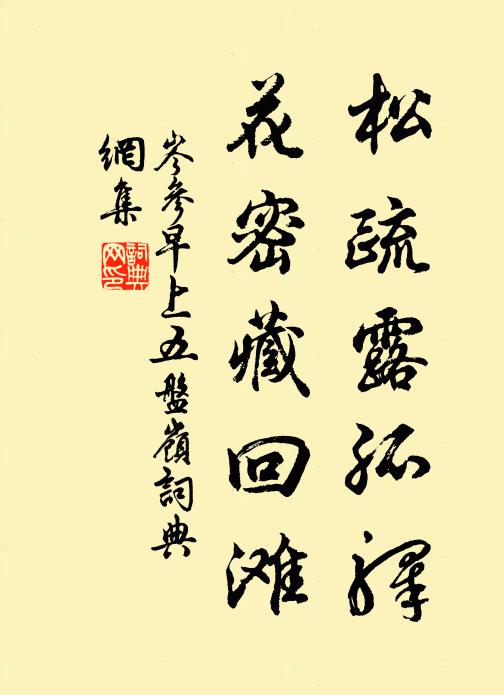 松疏露孤驛
花密藏回滩
岑參早上五盤嶺詞典
網集
詞典
网印